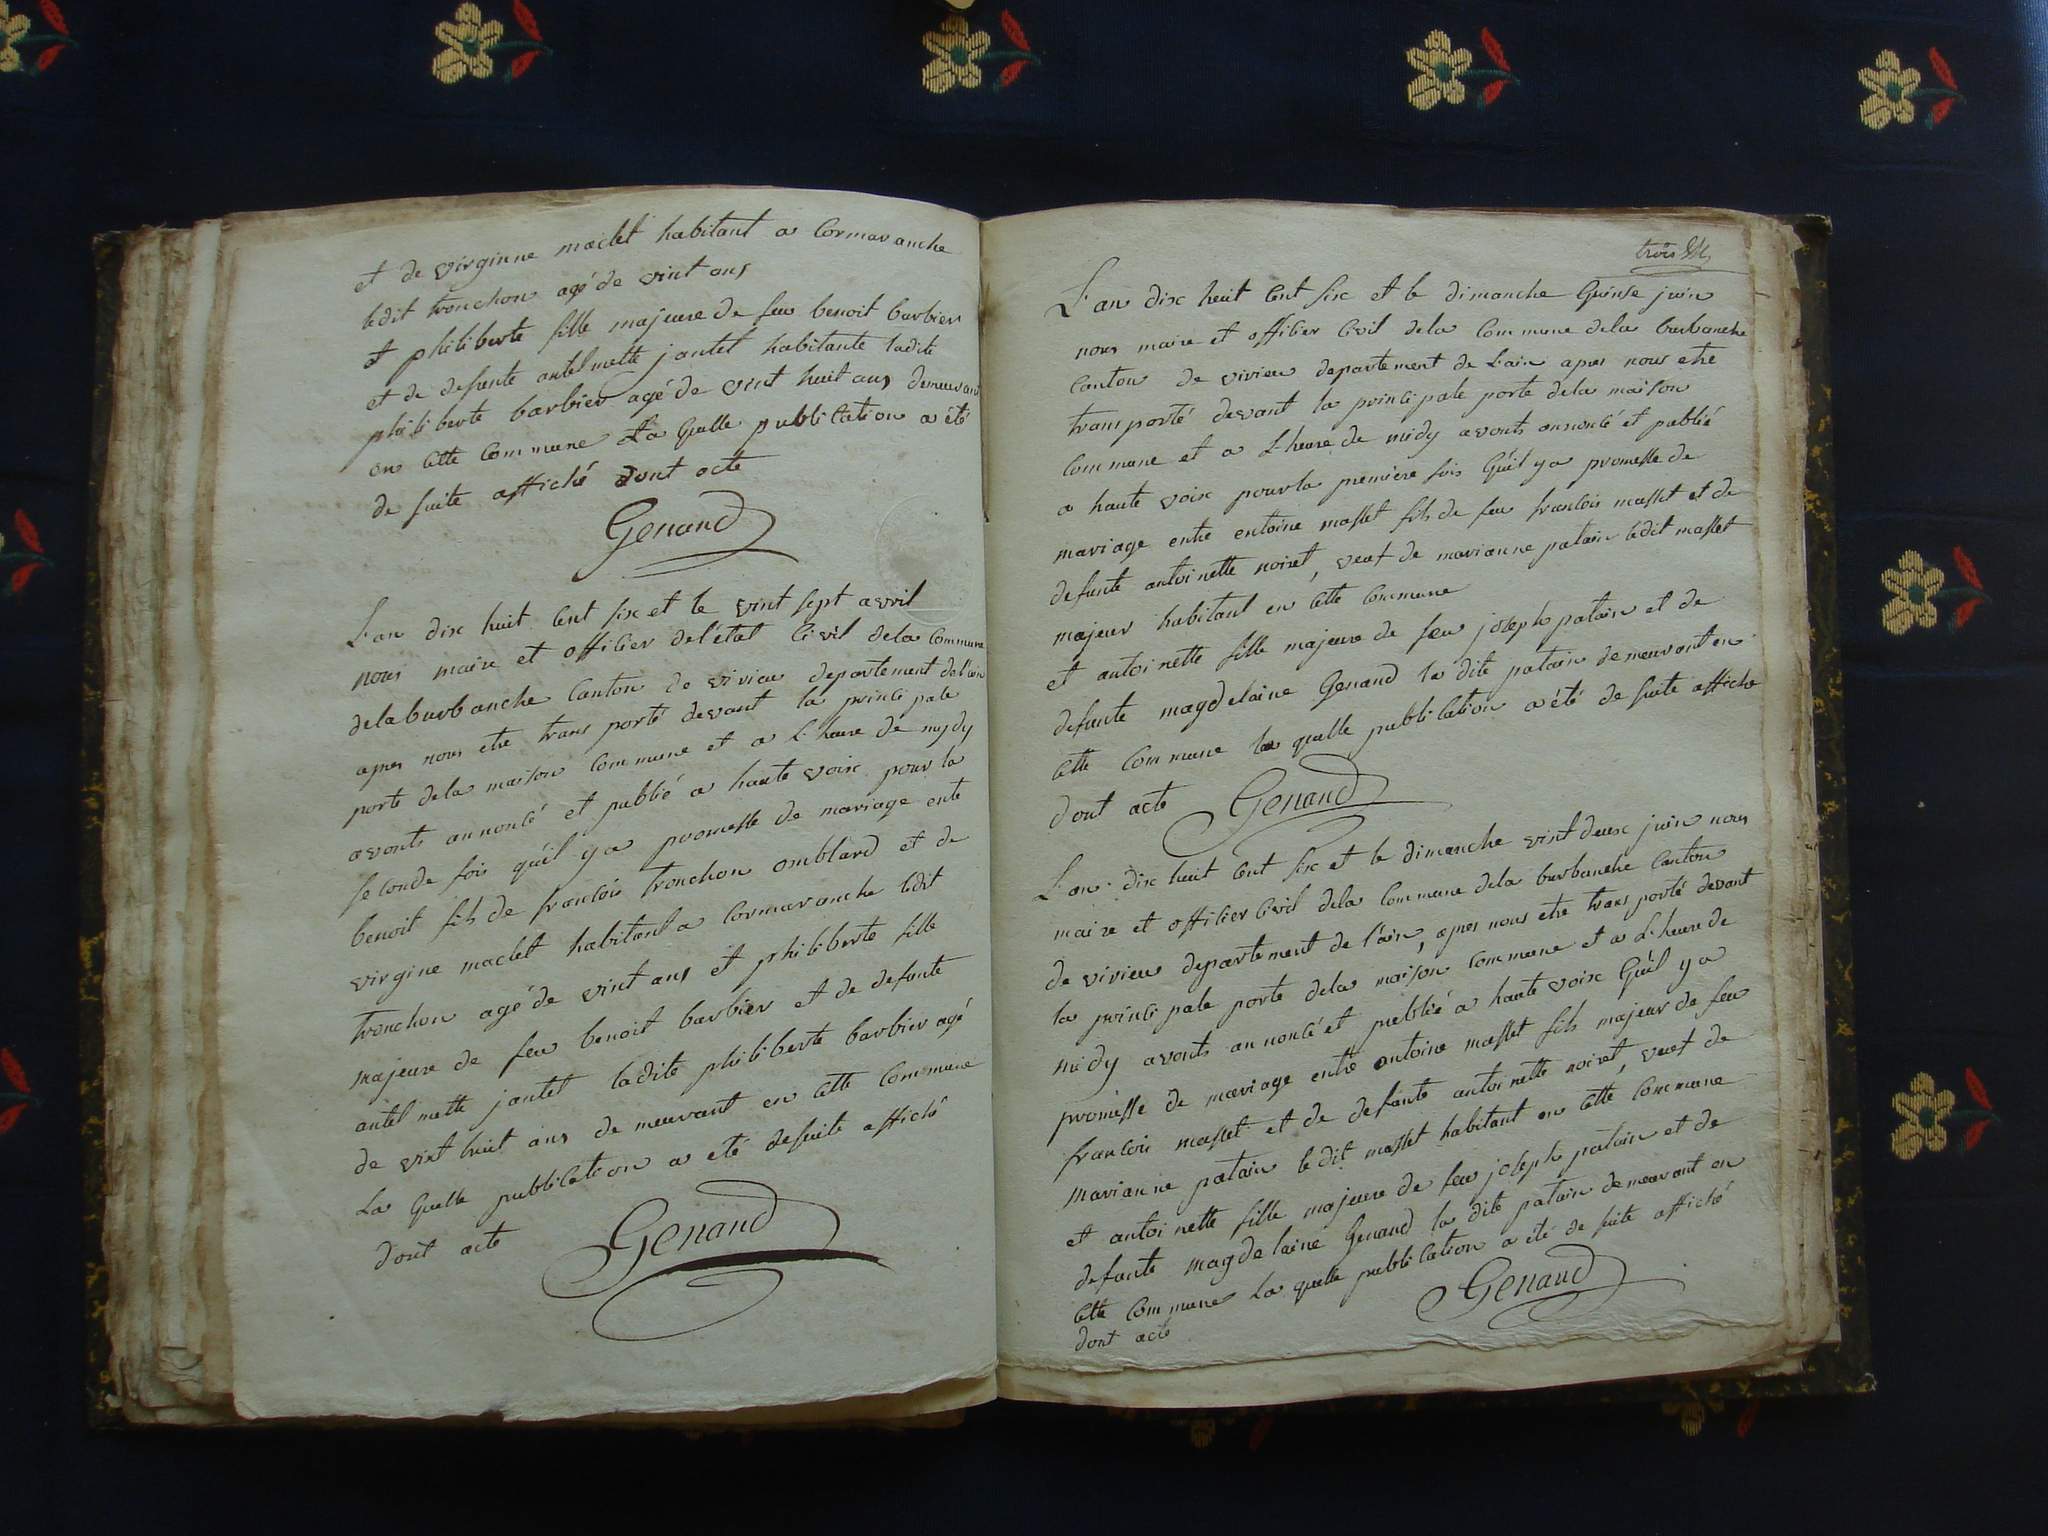 et de virginne maclet habitant a Cormaranche
ledit tronchon agé de vint ans
et philiberte fille majeure de feu benoit barbier
et de defunte antelmette jantet habitante ladite
philiberte barbier agé de vint huit ans demeurant
en cette Commune La quelle publication a été
de suite affiché dont acte
Genand
L'an dix huit Cent six et le vint sept avril
nous maire et officier de l'état Civil dela Commune
dela burbanche Canton de virieu departement de l'ain
apres nous etre trans porté devant la principale
porte dela maison Commune et a L'heure de mydy
avonts annoncé et publié a haute voix pour la
seconde fois quéil y a promesse de mariage entre
benoit fils de francois tronchon omblard et de
virgine maclet habitant a Cormaranche ledit
tronchon agé de vint ans et philiberte fille
majeure de feu benoit barbier et de defunte
antelmette jantet ladite philiberte barbier agé
de vint huit ans de meurant en cette Commune
La quelle publication a eté desuite affiché
dont acte Genand
trois
L'an dix huit Cent six et le dimanche Quinse juin
nous maire et officier Civil dela Commune dela burbanche
Canton de virieu departement de L'ain apres nous etre
transporté devant la principale porte dela maison
Commune et a L'heure de midy avonts annoncé et publié
a haute voix pourla premiere fois Quéil ya promesse de
mariage entre entoine masset fils de feu francois masset et de
defunte antoinette noiret, veuf de marianne patain ledit masset
majeur habitant en Cette Commune
et antoinette fille majeure de feu joseph patain et de
defunte magdelaine Genand la dite patain demeurant en
Cette Commune la quelle publication a été de suite affiche
dont acte Genand
L'an dix huit Cent six et le dimanche vint deux juin nous
maire et officier Civil dela Commune dela burbanche Canton
de virieu departement de l'ain, apres nous etre trans porté devant
la principale porte dela maison Commune et a L'heure de
midy avonts annoncé et publié a haute voix Quéil y a
promesse de mariage entre antoine masset fils majeur de feu
francois masset et de defunte antoinette noiret, veuf de
marianne patain ledit masset habitant en Cette Commune
et antoinette fille majeure de feu joseph patain et de
defunte magdelaine Genand la dite patain demeurant en
Cette Commune La quelle publication a été de suite affiché
dont acte Genand